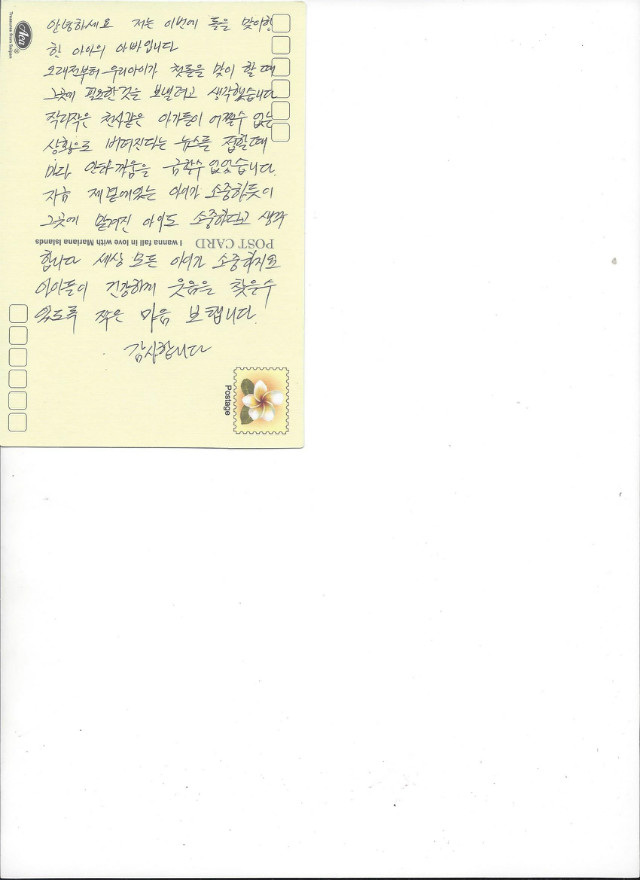 안녕하세요 저는 이번에 돌을 맞이한
한 아이의 아빠입니다
오래전부터 우리아이가 첫돌을 맞이 할 때
그곳에 필요한것을 보낼려고 생각했습니다
작디작은 천사같은 아가들이 어쩔수 없는
상황으로 버려진다는 뉴스를 접할때
마다 안타까움을 금할수 없었습니다
지금 제 옆에있는 아이가 소중하듯이
그곳에 맡겨진 아이도 소중하다고 생각
합니다 세상 모든 아이가 소중하지요
아이들이 건강하게 웃음을 찾을수
있도록 작은 마음 보탭니다
감사합니다
POST CARD
I wanna fall in love with Mariana Islands
Postage
Treasures from Saipan